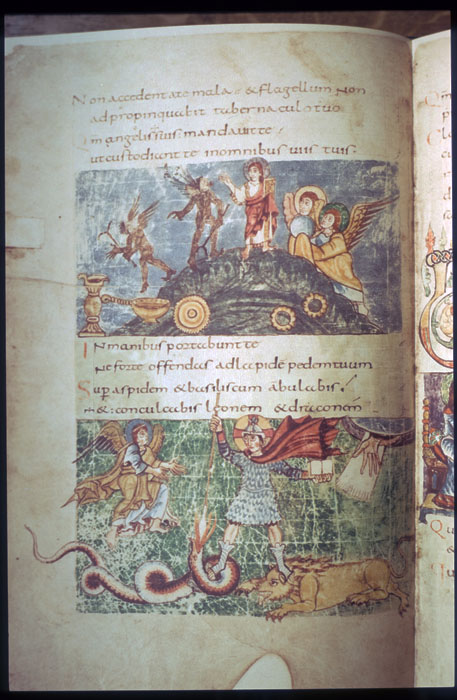 Non accedent ate mala & flagellum non
adpropinquabit tabernaculo tuo
In angelis suis mandavit te
ut custodiant te in omnibus viis tuis.
In manibus portabunt te
ne forte offendas ad lapidē pedem tuum
Sup aspidem & basiliscum ābulabis
& conculcabis leonem & draconem